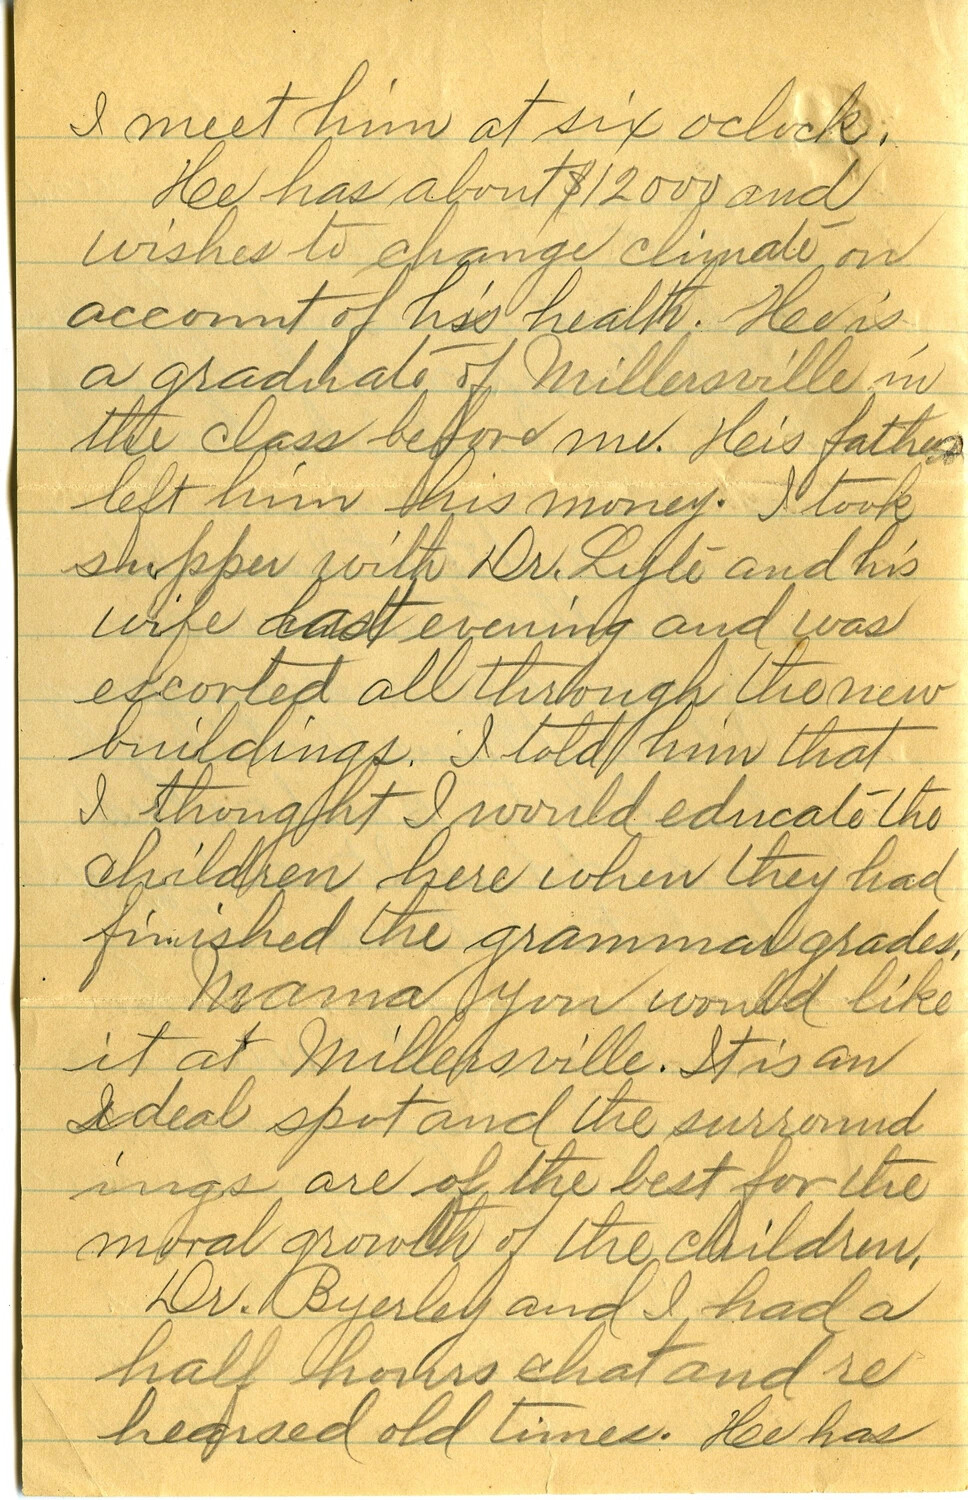 I meet him at six oclock.
He has about $12000 and
wishes to change climate on
account of his health. He is
a graduate of Millersville in
the class before me. Heis father
left him this money. I took
supper with Dr. Lyte and his
wife last evening and was
escorted all through the new
buildings. I told him that
I thought I would educate the
children here when they had
finished the grammar grades.
Mama you would like
it at Millersville. It is an
Ideal spot and the surround
ings are of the best for the
moral growth of the children.
Dr. Byerley and I had a
half hours chat and re
hearsed old times. He has